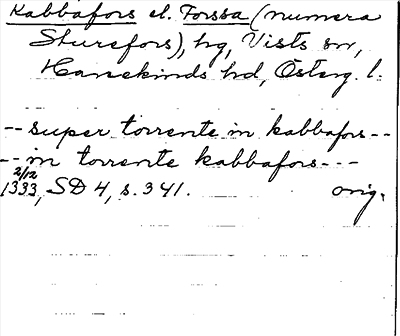 Kabbafors el. Forssa (numera
Sturefors), hg, Vists sn,
Hanekinds hd, Österg. l.
-- super torrente in kabbafors --
-- in torrente kabbafors ---
2/12
1333, SD 4, s. 341. orig.